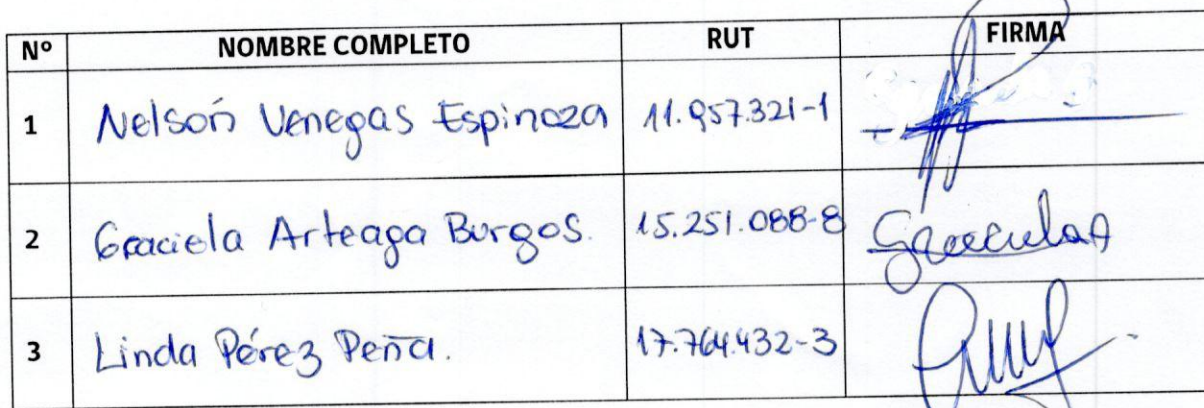 Nº NOMBRE COMPLETO RUT FIRMA
1 Nelson Venegas Espinoza 11.957.321-1
2 Graciela Arteaga Burgos. 15.251.088-8 GracielaA
3 Linda Pérez Peña. 17.764.432-3